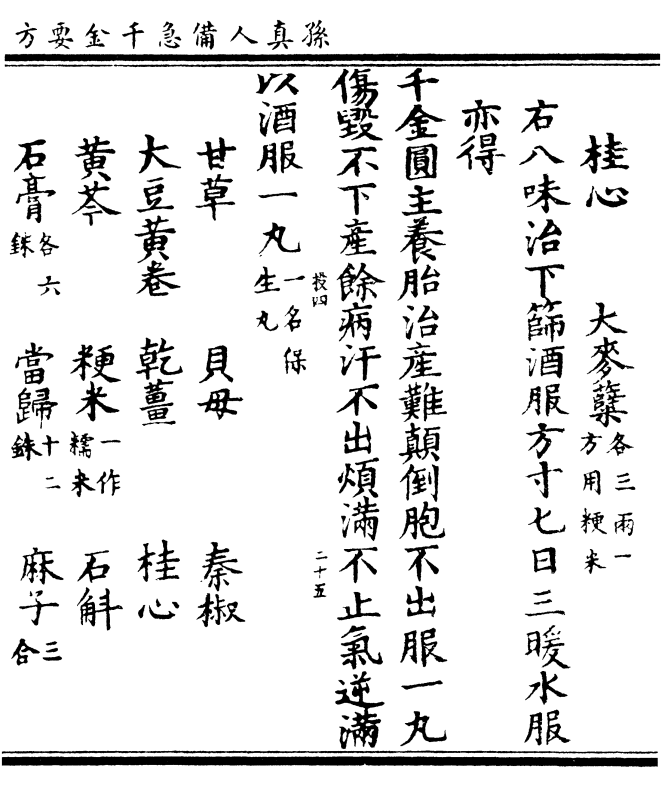 孫真人備急千金要方
桂心 大麥蘖各三兩一方用粳米
右八味治下篩酒服方寸匕日三暖水服
亦得
千金圓主養胎治產難顛倒胞不出服一丸
傷毀不下產餘病汗不出煩滿不止氣逆滿
以酒服一丸一名保生丸
投四
二十五
甘草 貝母 秦椒
大豆黃卷 乾薑 桂心
黃芩 粳米一作糯米 石斛
石膏各六銖 當歸十二銖 麻子三合